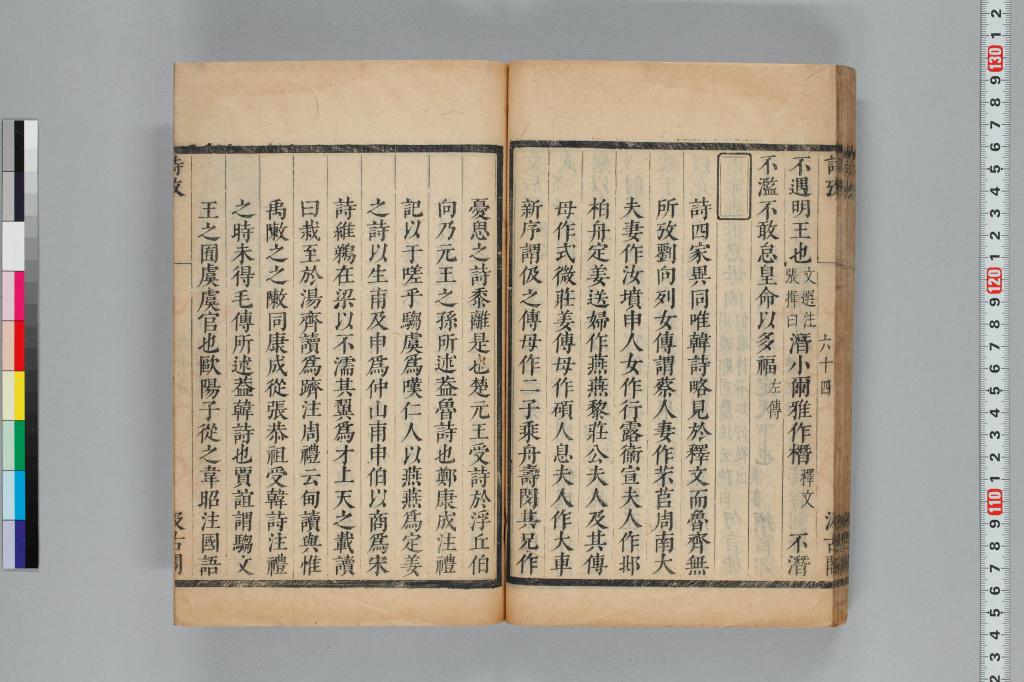 不遇明王也文選注張揖曰潛小爾雅作橬釋文不潛
不濫不敢怠皇命以多福左傳
詩四家異同唯韓詩略見於釋文而魯齊無
所攷劉向列女傳謂蔡人妻作芣苢周南大
夫妻作汝墳申人女作行露衞宣夫人作邶
柏舟定姜送婦作燕燕黎莊公夫人及其傅
母作式微莊姜傅母作碩人息夫人作大車
新序謂伋之傅母作二子乘舟壽閔其兄作
憂思之詩黍離是也楚元王受詩於浮丘伯
向乃元王之孫所述葢魯詩也鄭康成注禮
記以于嗟乎騶虞爲嘆仁人以燕燕爲定姜
之詩以生甫及申爲仲山甫申伯以商爲宋
詩維鵜在梁以不濡其翼爲才上天之載讀
曰栽至於湯齊讀爲躋注周禮云甸讀與惟
禹敶之之敶同康成從張恭祖受韓詩注禮
之時未得毛傳所述葢韓詩也賈誼謂騶文
王之囿虞虞官也歐陽子從之韋昭注國語
詩攷
六十四
汲古閣